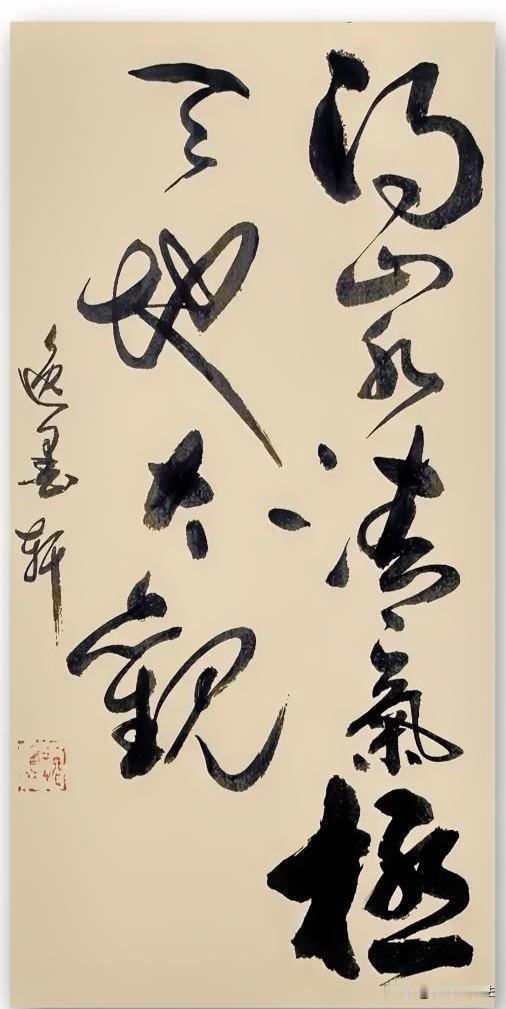 得山水清氣極
天地大觀
逸墨軒